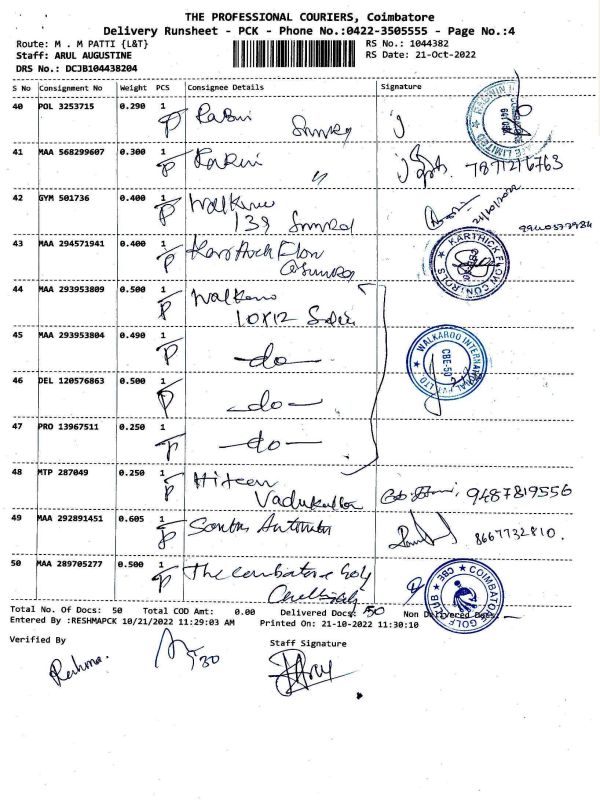 THE PROFESSIONAL COURIERS, Coimbatore
Delivery Runsheet - PCK - Phone No.:0422-3505555 - Page No.:4
Route: M . M PATTI {L&T}
RS No.: 1044382
Staff: ARUL AUGUSTINE
RS Date: 21-Oct-2022
DRS No.: DCJB104438204
S No Consignment No Weight PCS Consignee Details Signature
40 POL 3253715 0.290 1
41 MAA 568299607 0.300 1 7871216763
42 GYM 501736 0.400 1 Walkaroo
139
21/10/2022
43 MAA 294571941 0.400 1 Karthick Flow
KARTHICK FLOW CONTROLS
44 MAA 293953809 0.500 1 Walkaroo
10x12
45 MAA 293953804 0.490 1 -do-
WALKAROO INTERNATIONAL PVT LTD
CBE-50
46 DEL 120576863 0.500 1 -do-
47 PRO 13967511 0.250 1 -do-
48 MTP 287049 0.250 1 Hiteen
9487819556
49 MAA 292891451 0.605 1 8667732810.
50 MAA 289705277 0.500 1 The Coimbatore Golf
COIMBATORE GOLF CLUB CBE
Total No. Of Docs: 50 Total COD Amt: 0.00 Delivered Docs: 50 Non Delivered Docs: —
Entered By :RESHMAPCK 10/21/2022 11:29:03 AM Printed On: 21-10-2022 11:30:10
Verified By
Staff Signature
Reshma.